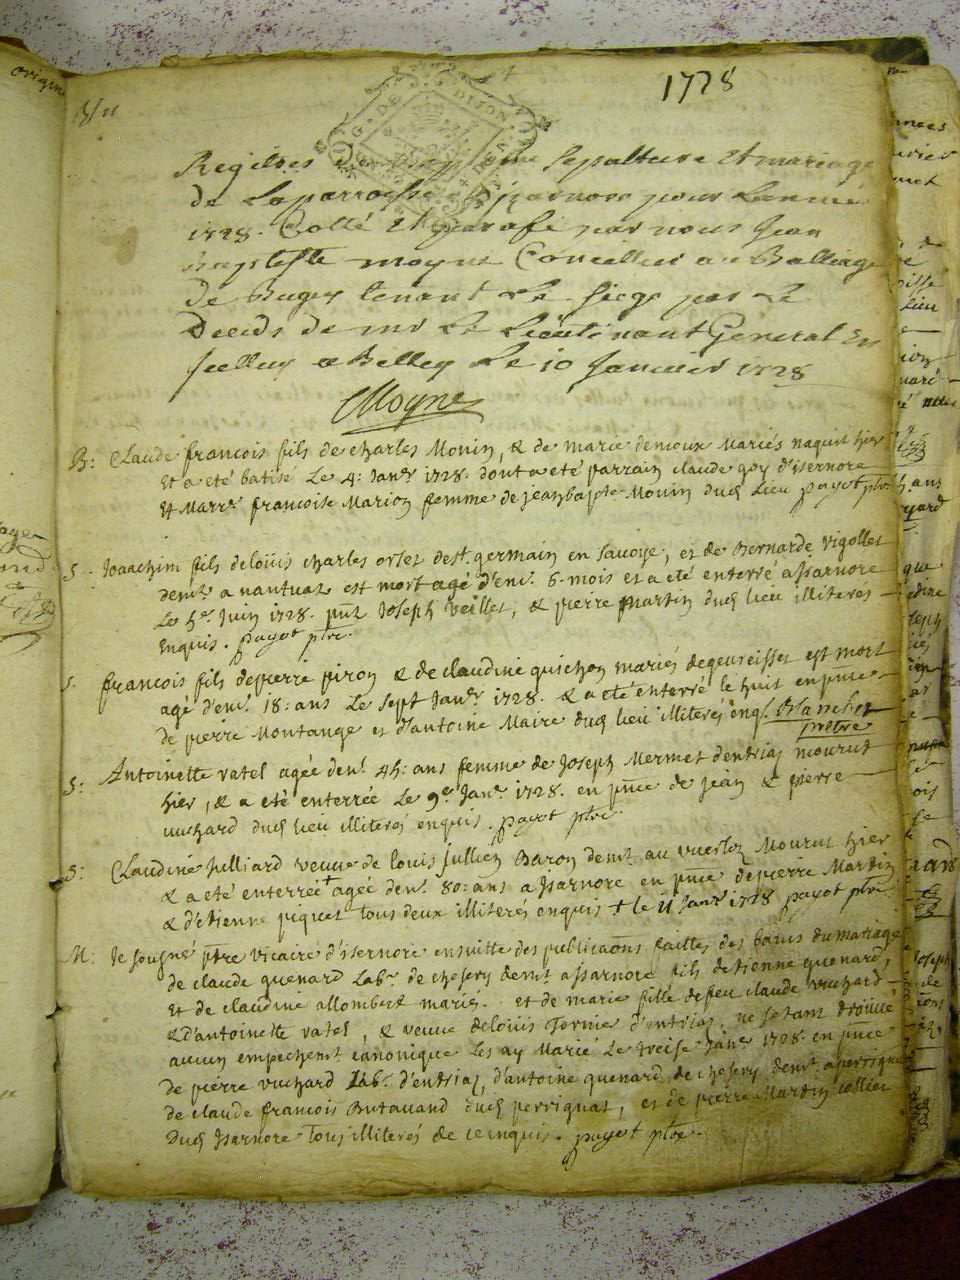 1728
Registres de Baptême sepulture Et mariage
de La parroisse d'izarnore pour Lannée
1728. Cotté Et parafé par nous Jean
Baptiste moyne Conseiller au Balliage
de Bugey tenant Le siege par Le
Deceds de mr Le Lieutenant General En
a Belley Le 10 Janvier 1728
CMoyne
B: Claude francois fils de charles Monin, & de marie demoux Mariés naquit hier
Et a eté batisé Le 4: Janr. 1728. dont a eté parrain claude goy d'isernore
Et Marre. francoise Marion femme de jean bapte Monin dud Lieu payot ptre
S. Joaachim fils de loüis charles orset de st. germain en savoye, et de Bernarde vigollet
demt. a nantuat est mort agé d'env. 6 mois et a eté enterré a Jsarnore
Le Juin 1728. pnt Joseph veillet, & pierre Martin dud lieu illiterés
Enquis. payot ptre.
S. francois fils de pierre piron & de claudine guichon mariés de geureisset est mort
agé d'env. 18: ans Le sept Janr. 1728. & a eté enterré le huit en pnce
de pierre Montange et d'antoine Maire dud lieu illiterés enq. Blanchet
prêtre
S: Antoinette vatel agée denv. 45: ans femme de Joseph Mermet d'entrias mourut
hier, & a eté enterrée Le 9e. Janr. 1728. en pnce de jean & pierre
vuchard dud lieu illiterés enquis. payot ptre
S: Claudine Julliard veuve de louis jullien Baron demt. au Mourut hier
& a eté enterrée + agée denv. 80: ans a Jsarnore en pnce de pierre Martin
& d'etienne piquet tous deux illiterés enquis + le 11 Janr 1728 payot ptre
M: Je sousgné ptre vicaire d'isernore ensuitte des publicaons faittes des bans du mariage
de claude guenard Labr. de chesery demt. a Jsarnore fils de tienne guenard,
Et de claudine allombert mariés. et de marie fille de feu claude vuchard
& d'antoinette vatel, & veuve de loüis Tornier d'entrias, ne setant trouvé
aucun empechemt canonique Les ay Marié Le treise Janr. 1728. en pnce
de pierre vuchard Labr. d'entrias, d'antoine guenard de chesery demt. a perrignat
de claude francois Butavand dud perrignat, et de pierre Martin collier
Dud Jsarnore tous illiterés de ce enquis. payot ptre.